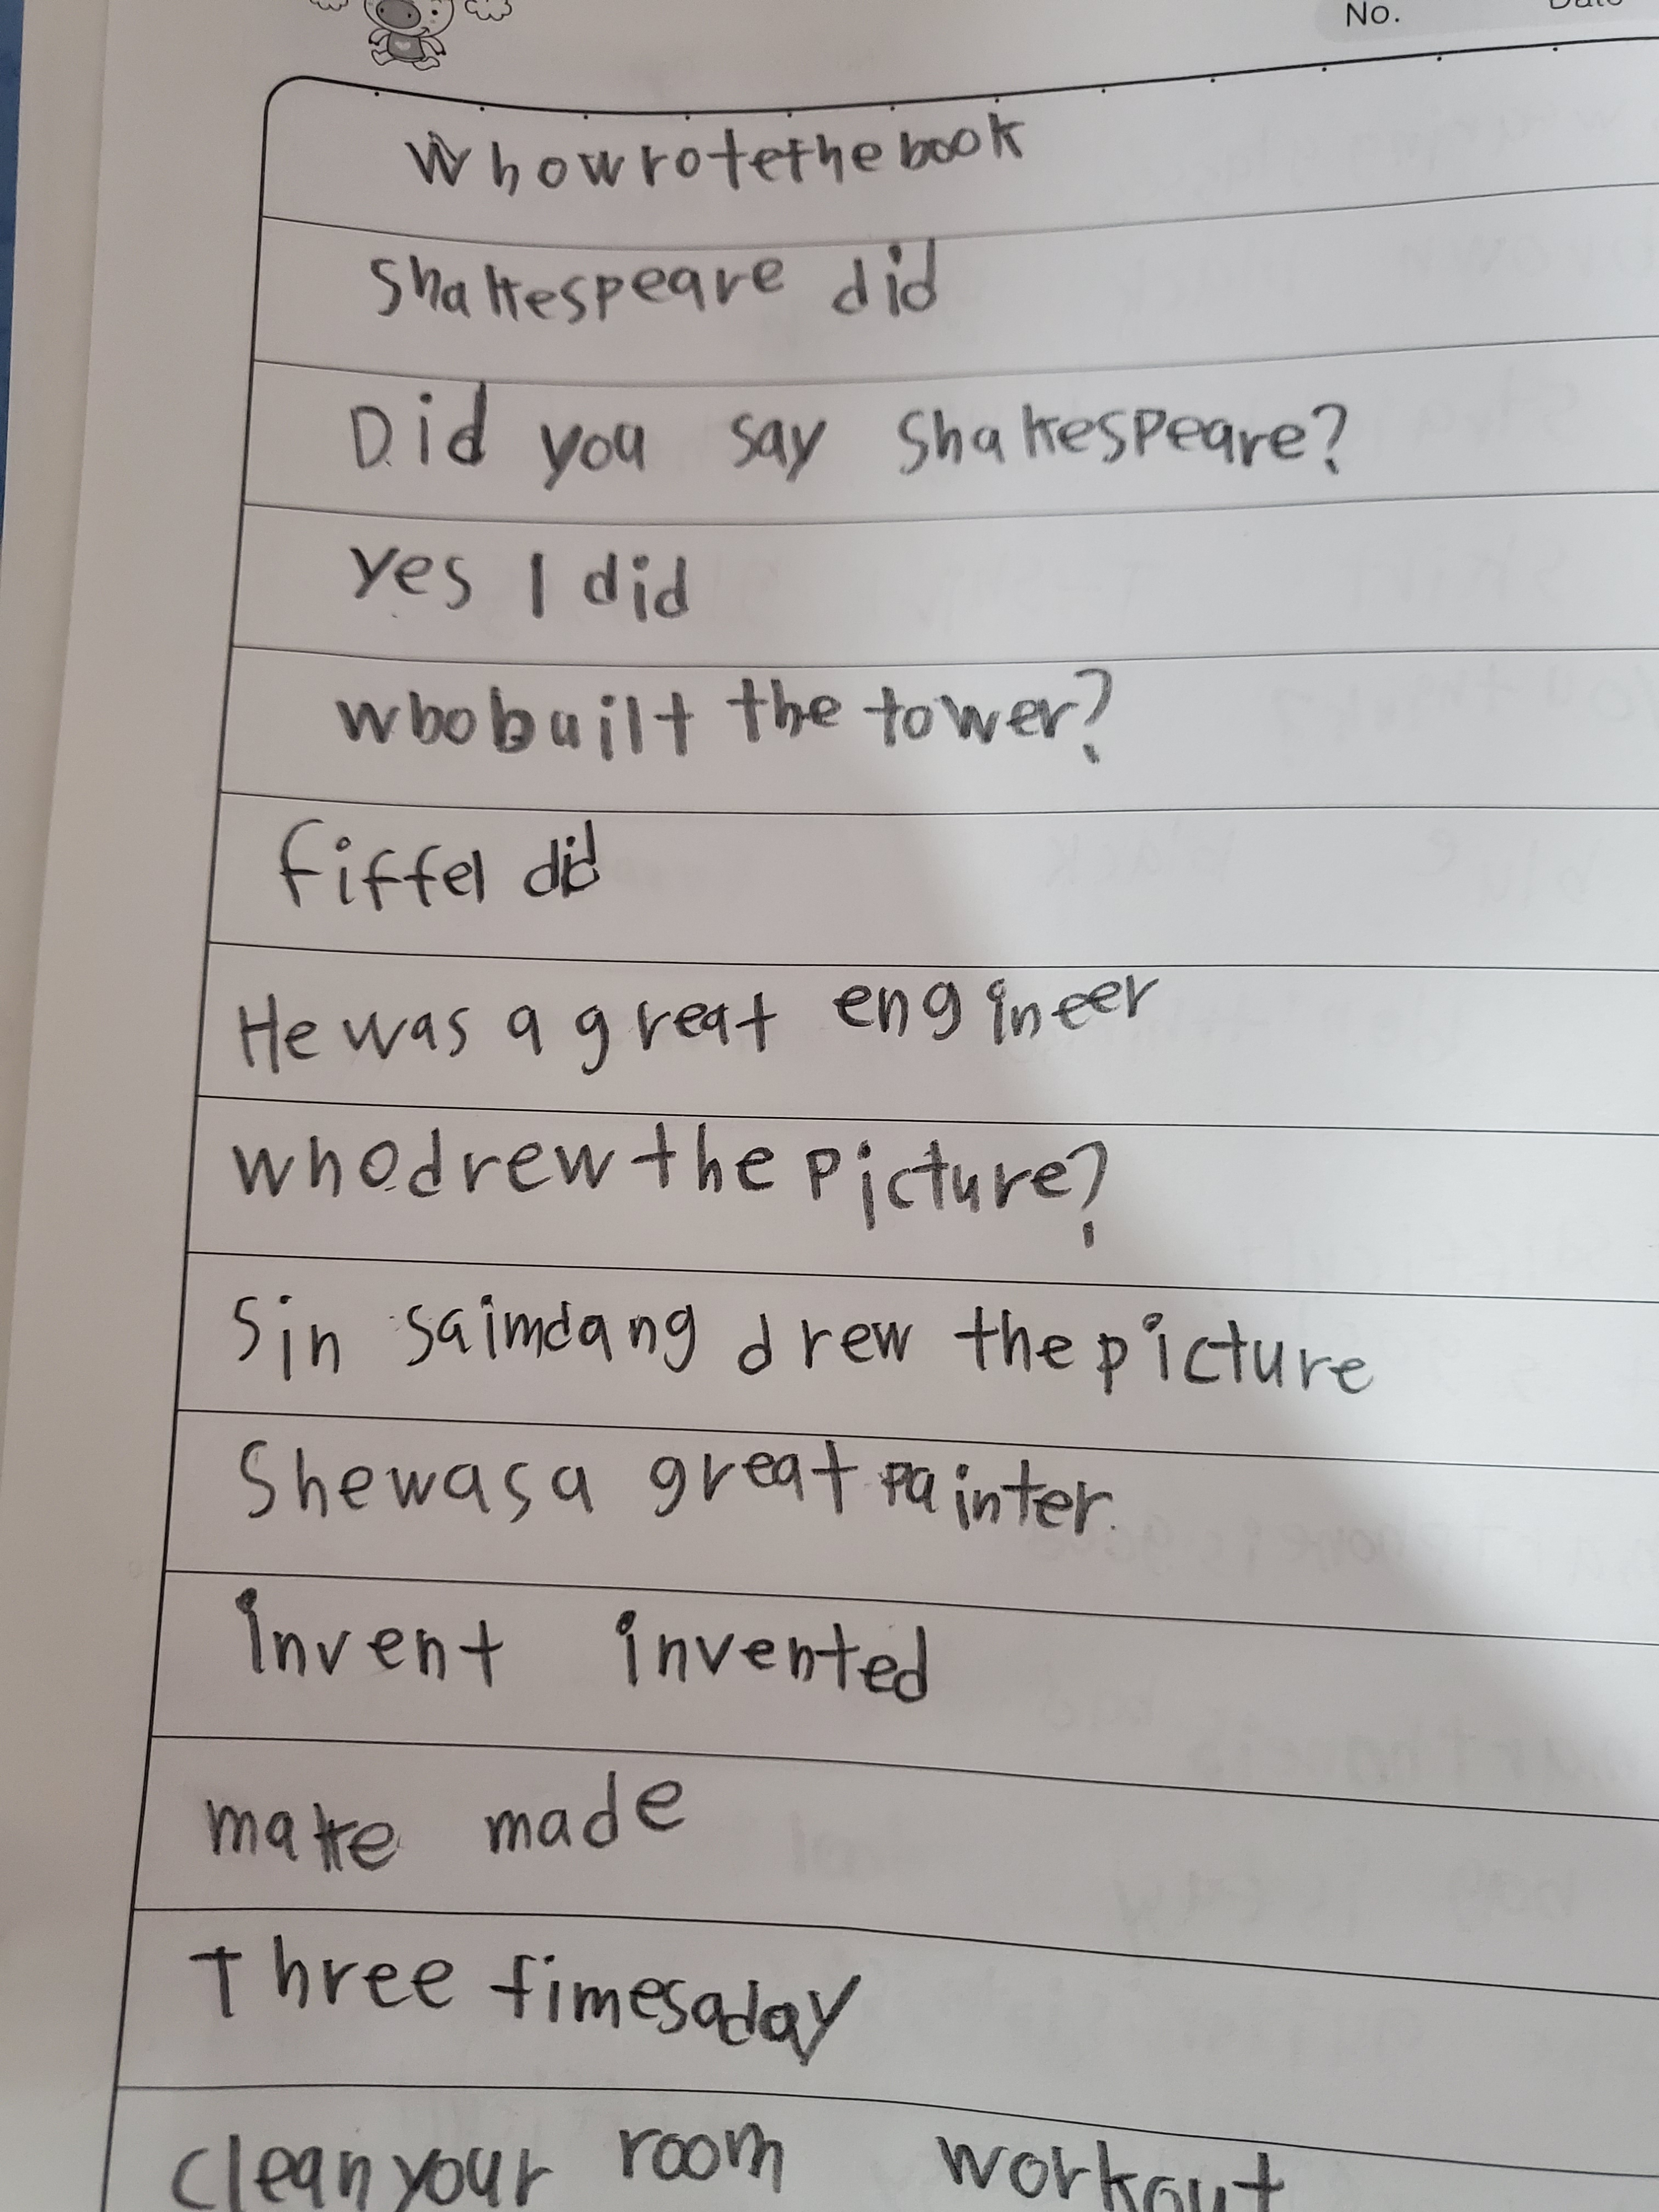 No. Date
Whowrotethebook
Shakespeare did
Did you say Shakespeare?
yes I did
whobuilt the tower?
fiffel did
He was a great engineer
whodrewthepicture?
Sin saimdang drew the picture
Shewasa great painter.
invent invented
make made
Three fimesaday
cleanyour room workout